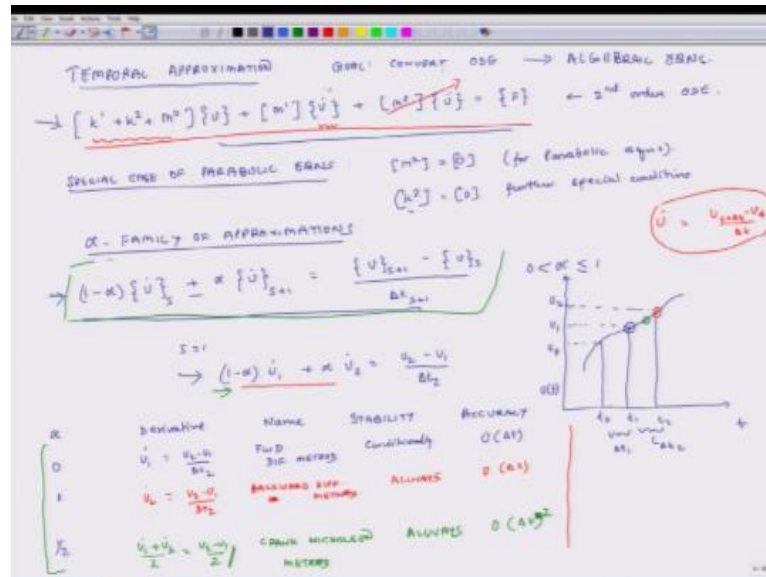 TEMPORAL APPROXIMATION GOAL: CONVERT ODE → ALGEBRAIC EQNS.
→ [k¹ + k² + m⁰] {U} + [m¹] {U̇} + [m²] {Ü} = {F} ← 2nd order ODE.
SPECIAL CASE OF PARABOLIC EQNS. [m²] = [0] (for Parabolic eqns).
[k²] = [0] further special condition
U̇ =
α - FAMILY OF APPROXIMATIONS
0 < α ≤ 1
→ (1-α) {U̇}s + α {U̇}s+1 = {U}s+1 - {U}s / Δts+1
S = 1
→ (1-α) U̇₁ + α U̇₂ = U₂ - U₁ / Δt₂
U₂
U₁
U₀
U(t)
t₀ t₁ t₂ t
Δt₁ Δt₂
α Derivative Name STABILITY ACCURACY
0 U̇₁ = U₂-U₁ / Δt₂ FWD DIF. METHOD Conditionally O(Δt)
1 U̇₂ = U₂-U₁ / Δt₂ BACKWARD DIFF METHOD ALWAYS O(Δt)
½ U̇₁+U̇₂ / 2 = U₂-U₁ / CRANK NICHOLSON METHOD ALWAYS O(Δt)²